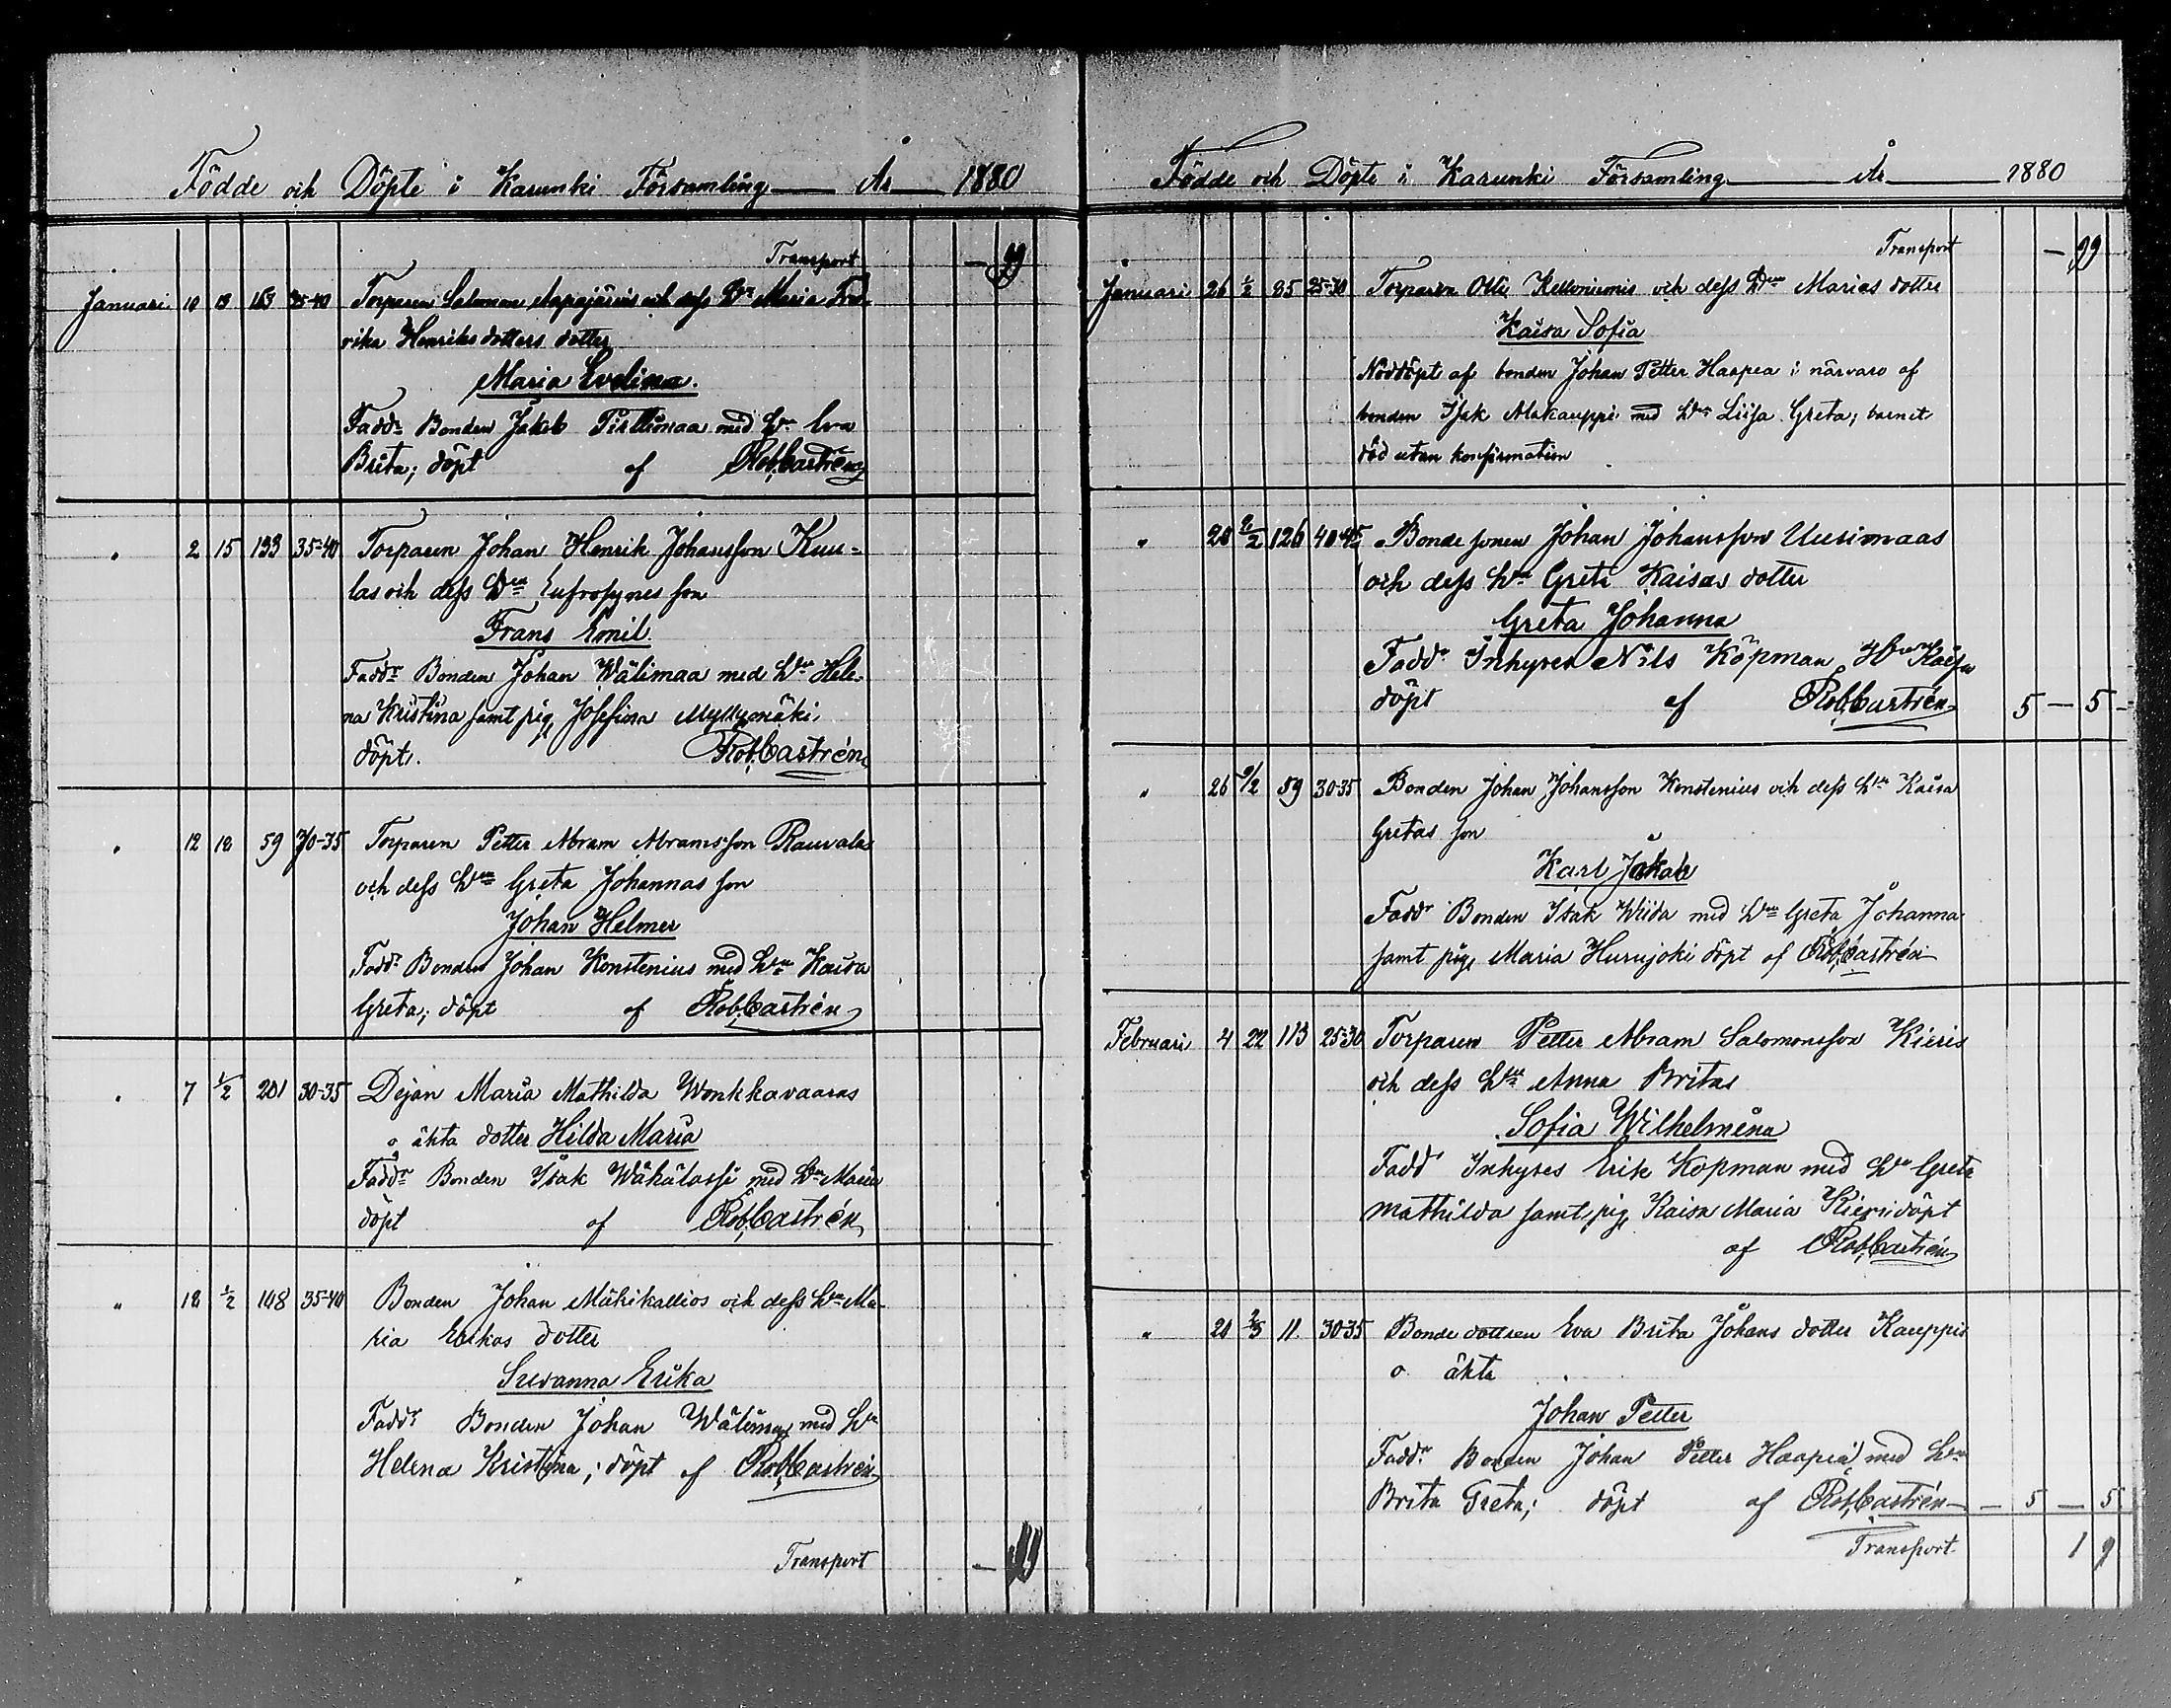 Födde och Döpte i Karunki Församling År 1880
Transport — 99
Januari 10 13 163 35-40 Torparen Salomon Aapajärvis och dess Hu Maria Fred-
rika Henriksdotters dotter
Maria Evelina.
Faddr Bonden Jakob Pirttimaa med Hu Eva
Brita; döpt af Rob. Castrén
" 2 15 133 35-40 Torparen Johan Henrik Johansson Kuu-
las och dess Hu Eufrosynes son
Frans Emil
Faddr Bonden Johan Wälimaa med Hu Hele-
na Kristina samt pig. Josefina Myllymäki,
döpt. Rob. Castrén
" 12 18 59 30-35 Torparen Petter Abram Abramsson Rauvala
och dess Hu Greta Johannas son
Johan Helmer
Faddr Bonden Johan Konstenius med Hu Kaisa
Greta; döpt af Rob. Castrén
" 7 1/2 201 30-35 Dejan Maria Mathilda Wonkkavaaras
o äkta dotter Hilda Maria
Faddr Bonden Isak Wähälassi med Hu Maria
döpt af Rob. Castrén
" 18 1/2 108 35-40 Bonden Johan Mäkikallios och dess Hu Ma-
ria Erikas dotter
Susanna Erika
Faddr Bonden Johan Wälimaa med Hu
Helena Kristina; döpt af Rob. Castrén
Transport — 99
Födde och Döpte i Karunki Församling År 1880
Transport — 99
Januari 26 1/2 85 25-30 Torparen Olli Kelloniemis och dess Hu Marias dotter
Kaisa Sofia
Nöddöpt af bonden Johan Petter Haapea i närvaro af
bonden Isak Alakauppi med Hu Liisa Greta; barnet
död utan konfirmation
" 28 2/2 126 40-45 Bonde sonen Johan Johansson Uusimaas
och dess Hu Greta Kaisas dotter
Greta Johanna
Faddr Inhyses Nils Köpman, Hu Kaisa
döpt af Rob. Castrén 5 — 5 —
" 26 9/2 59 30-35 Bonden Johan Johansson Konstenius och dess Hu Kaisa
Gretas son
Karl Jakob
Faddr Bonden Isak Wiida med Hu Greta Johanna
samt pig. Maria Hurujoki döpt af Rob. Castrén
Februari 4 22 113 25-30 Torparen Petter Abram Salomonsson Kieris
och dess Hu Anna Britas
Sofia Wilhelmina
Fadd Inhyses Erik Kopman med Hu Greta
Mathilda samt pig. Kaisa Maria Kieri döpt
af Rob. Castrén
" 28 2/3 11. 30-35 Bonde dottren Eva Brita Johans dotter Kauppis
o äkta
Johan Petter
Faddr Bonden Johan Petter Haapea med Hu
Brita Greta; döpt af Rob. Castrén — 5 — 5
Transport 1 9